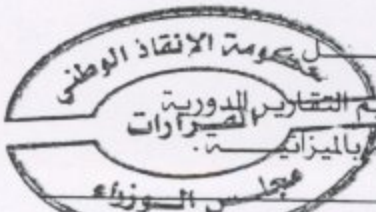 حكومة الانقاذ الوطني
التقارير الدورية
القرارات
بالميزانيـــة .
مجلس الـوزراء